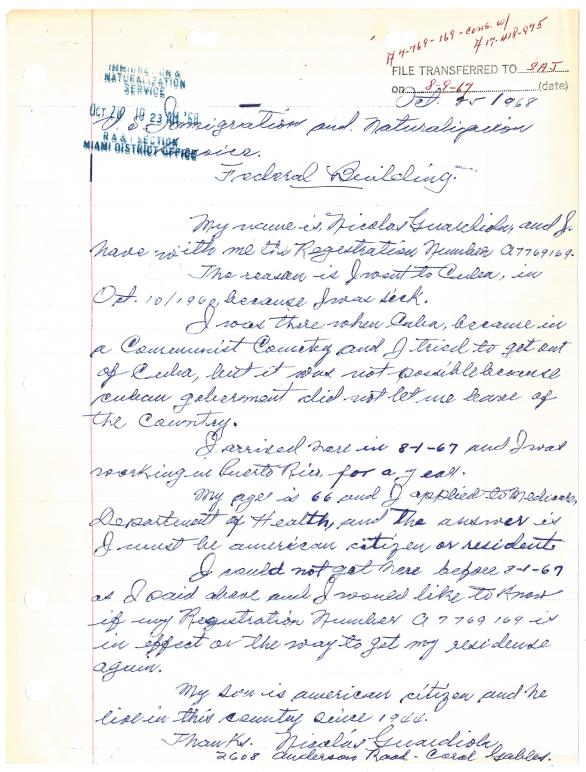 A7-769-169-cons. w/
A17-418-975
FILE TRANSFERRED TO SAJ
on 8-9-67 (date)
IMMIGRATION &
NATURALIZATION
SERVICE
OCT 10 23 AM '68
R A & I SECTION
MIAMI DISTRICT OFFICE
Oct. 25/1968
Immigration and Naturalization
Federal Building.
My name is, Nicolas Guardiola, and I
have with me the Registration Number A7769169.
The reason is I went to Cuba, in
Oct. 10/1960, because I was sick.
I was there when Cuba, became in
a Comunist Country and I tried to get out
of Cuba, but it was not possible because
cuban goberment did not let me leave of
the Country.
I arrised here in 8-1-67 and I was
working in Puerto Rico, for a year.
My age is 66 and I applied to Medicare,
Department of Health, and the answer is
I must be american citizen or resident.
I could not get here before 8-1-67
as I said above and I would like to know
if my Registration Number A7769169 is
in effect or the way to get my residense
again.
My son is american citizen and he
live in this country since
Thanks. Nicolás Guardiola
2608 Anderson Road - Coral Gables.